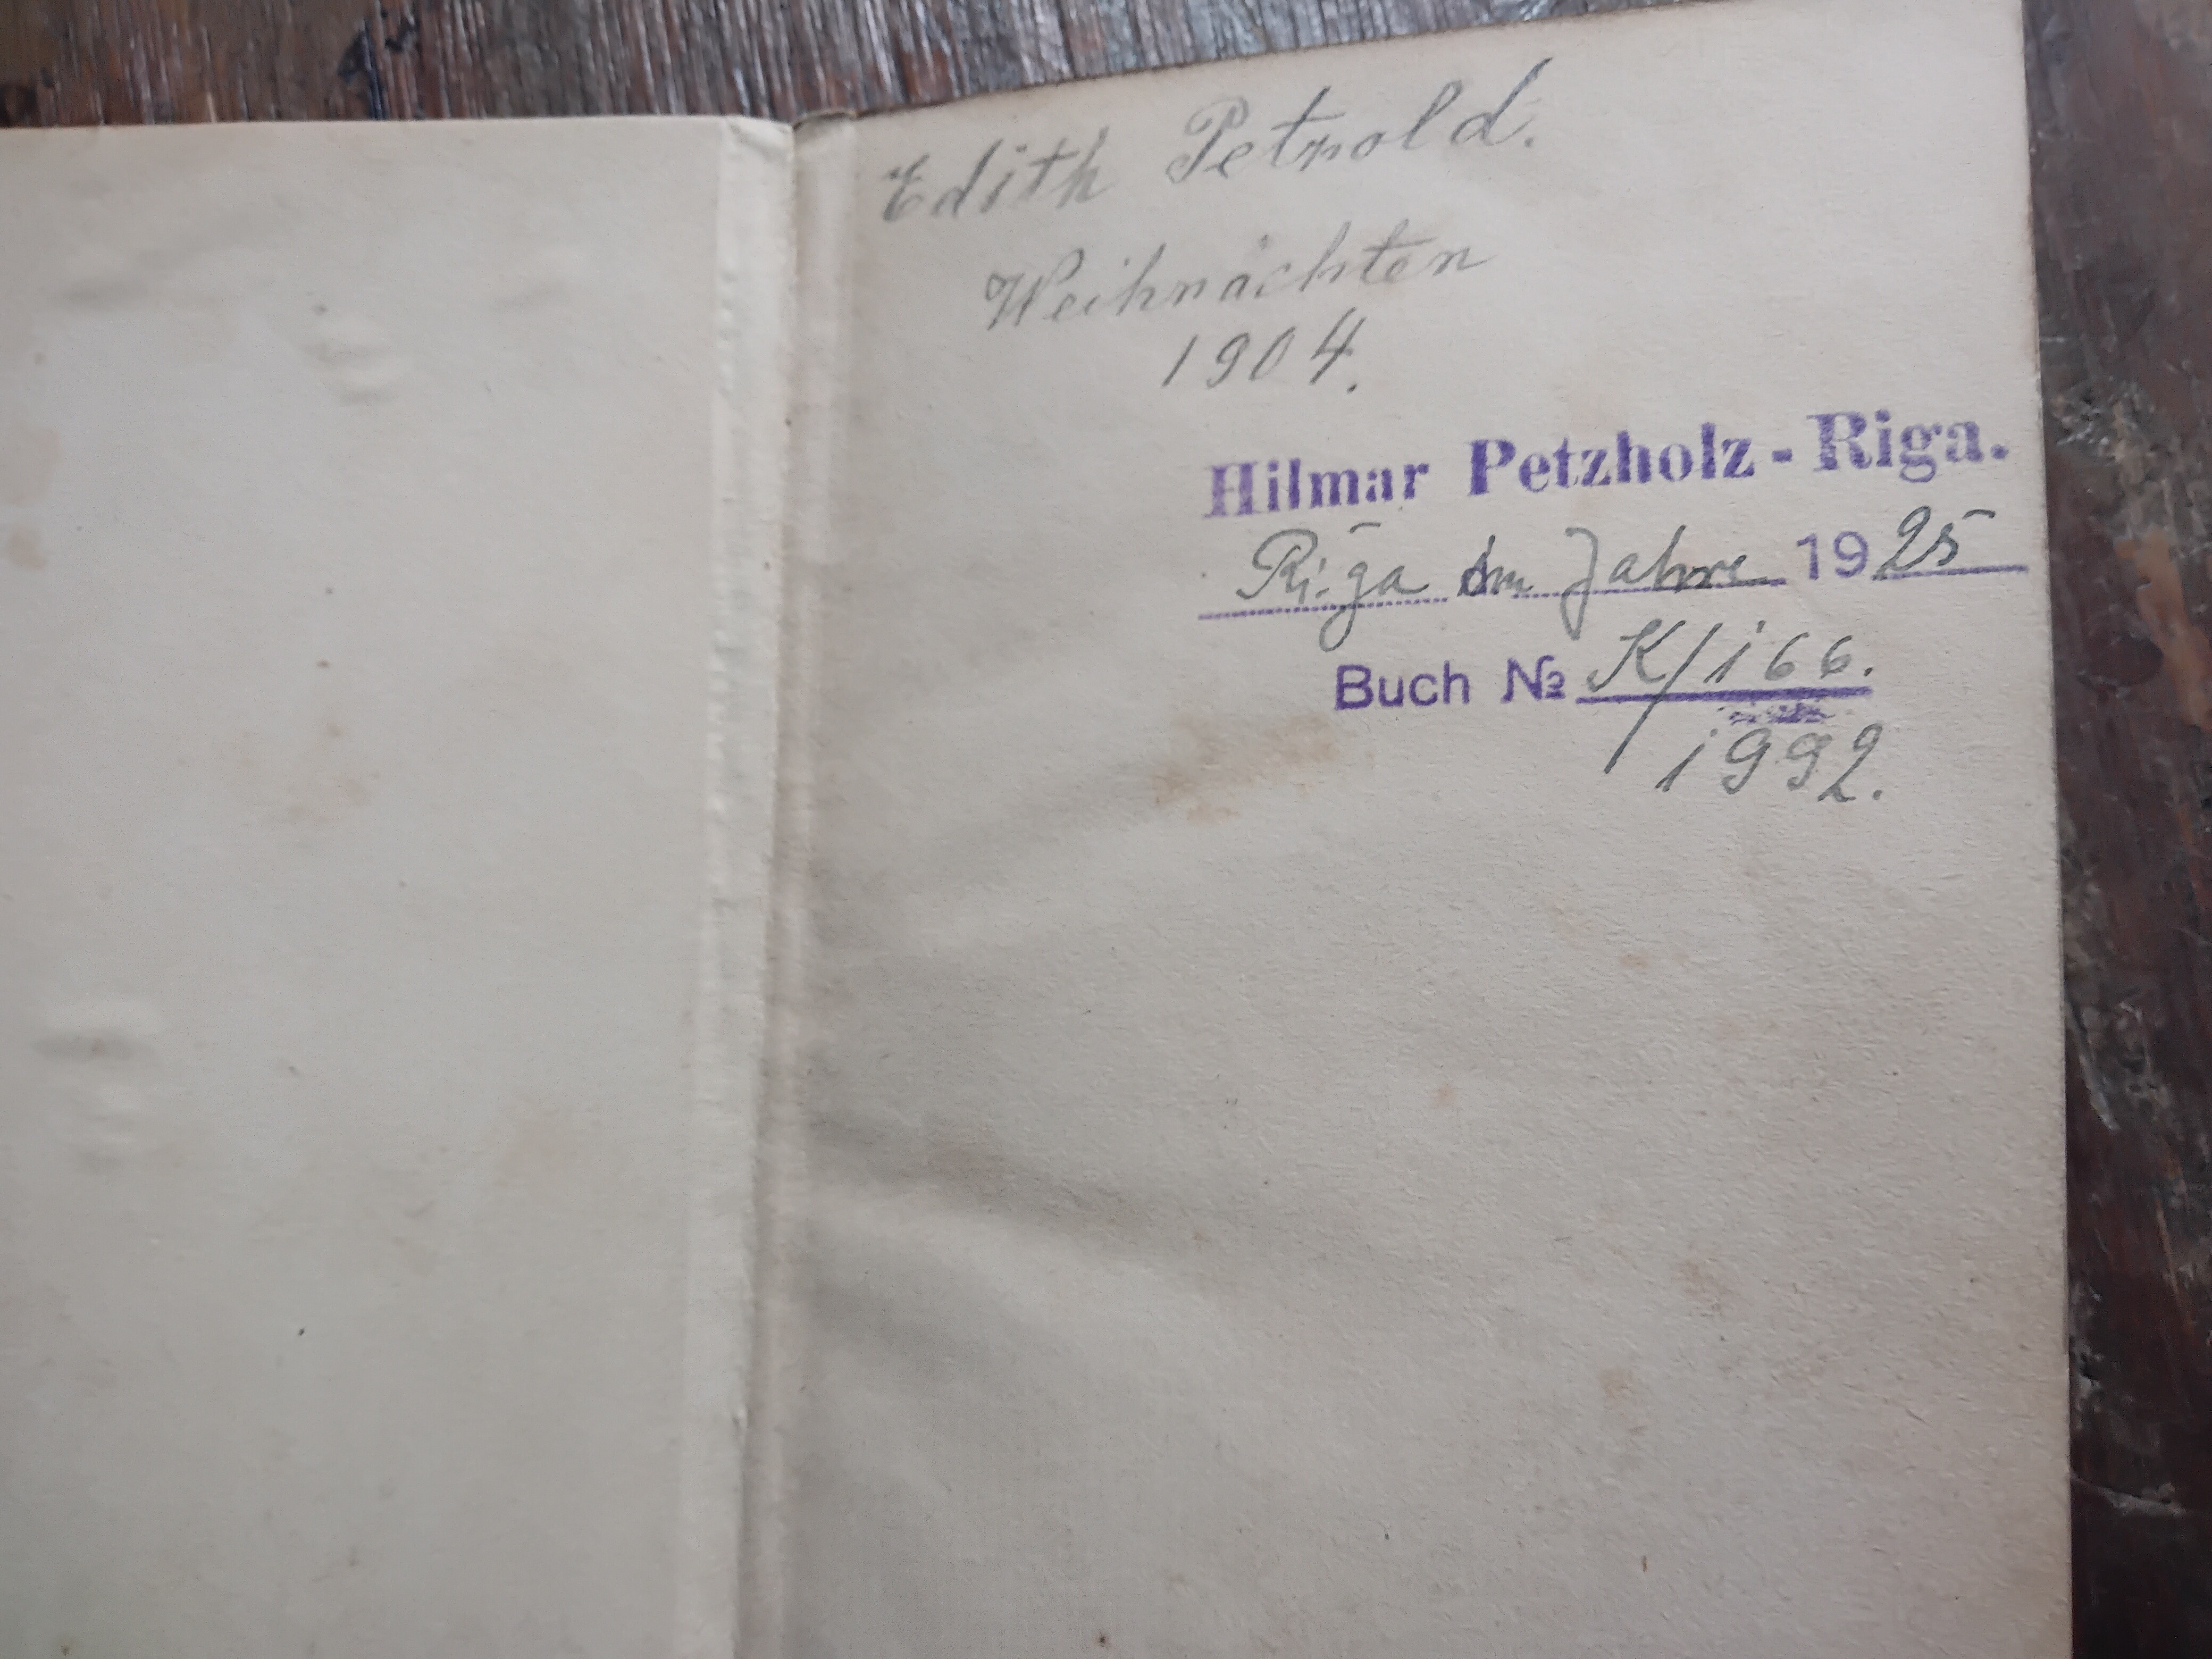 Edith Petzold.
Weihnachten
1904.
Hilmar Petzholz - Riga.
Riga im Jahre 1925
Buch № K/166.
1992.